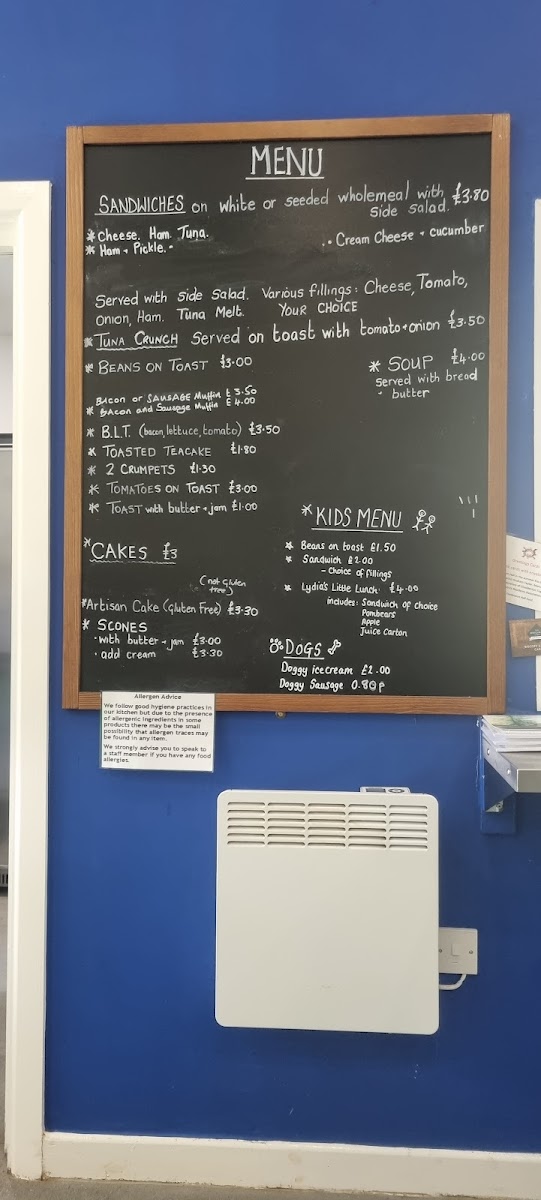 MENU
SANDWICHES on white or seeded wholemeal with £3.80
side salad.
* Cheese. Ham. Tuna.
* Ham + Pickle.
Cream Cheese + cucumber
Served with side salad. Various fillings: Cheese, Tomato,
Onion, Ham. Tuna Melt. YOUR CHOICE
* TUNA CRUNCH Served on toast with tomato + onion £3.50
* BEANS ON TOAST £3.00
* SOUP £4.00
served with bread
+ butter
Bacon or SAUSAGE Muffin £3.50
* Bacon and Sausage Muffin £4.00
* B.L.T. (bacon, lettuce, tomato) £3.50
* TOASTED TEACAKE £1.80
* 2 CRUMPETS £1.30
* TOMATOES ON TOAST £3.00
* TOAST with butter + jam £1.00
* CAKES £3
(not gluten free)
* Artisan Cake (Gluten Free) £3.30
* SCONES
• with butter + jam £3.00
• add cream £3.30
* KIDS MENU
* Beans on toast £1.50
* Sandwich £2.00
- choice of fillings
* Lydia's Little Lunch £4.00
includes: Sandwich of choice
Pombears
Apple
Juice Carton
DOGS
Doggy icecream £2.00
Doggy Sausage 0.80p
Allergen Advice
We follow good hygiene practices in
our kitchen but due to the presence
of allergenic ingredients in some
products there may be the small
possibility that allergen traces may
be found in any item.
We strongly advise you to speak to
a staff member if you have any food
allergies.